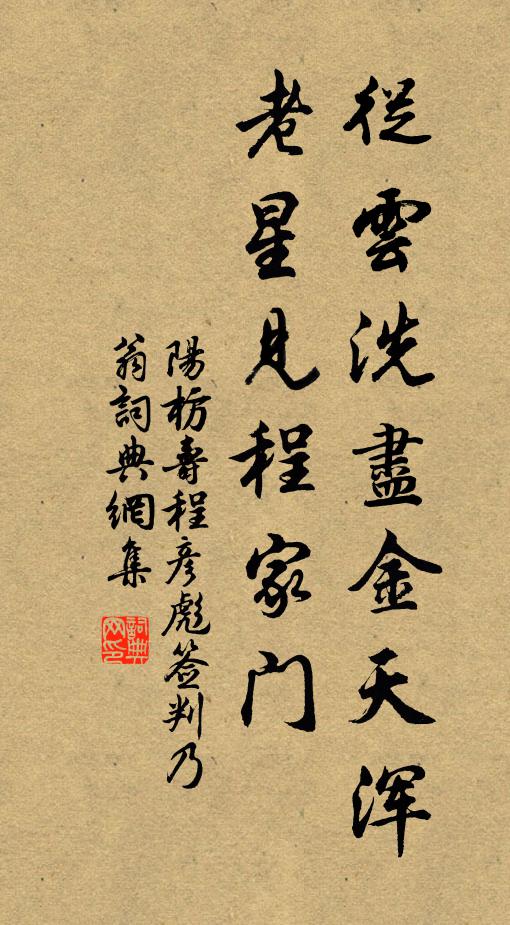 從雲洗盡金天渾
老星見程家門
陽枋壽程彦彪簽判乃
翁詞典網集
詞典網印